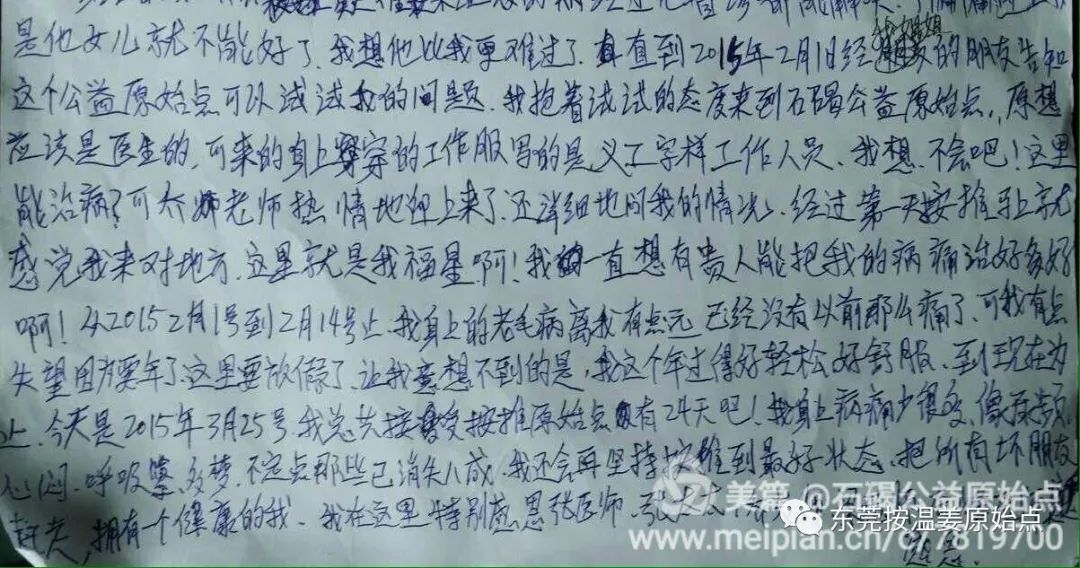 是他女儿就不能好了、我想他比我更难过了、直到2015年2月1日经徐姐姐的朋友告知
这个公益原始点可以试试我的问题、我抱着试试的态度来到石碣公益原始点,,原想
应该是医生的、可来的身上穿的工作服写的是义工字样工作人员、我想、不会吧!这里
能治病?可老师热情地迎上来了、还详细地问我的情况、经过第一天按推马上就
感觉我来对地方、这里就是我福星啊!我一直想有贵人能把我的病痛治好多好
啊!从2015 2月1号到2月14号止、我身上的老毛病离我有点远已经没有以前那么痛了、可我有点
失望因为要年了、这里要放假了、让我意想不到的是,我这个年过得好轻松好舒服、到现在为
止、今天是2015年3月25号我总共接受按推原始点有24天吧!我身上病痛少很多、像
心闷、呼吸、多梦、不定点那些已消失八成、我还会再坚持按推到最好状态、把所有坏朋友
赶走,拥有一个健康的我、我在这里特别感恩张医师、张
感恩.
美篇@石碣公益原始点
东莞按温姜原始点
www.meipian.cn/c/7819700